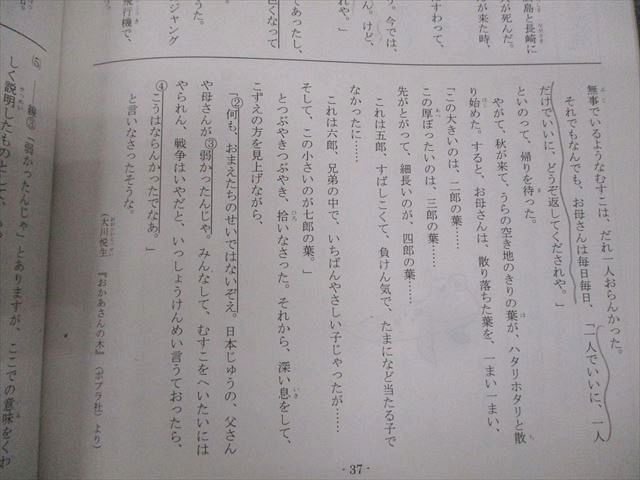 島と長崎に
が死んだ。
が来た時、
すわって、
う。今では、
ん。けど、
れや。」
であったし、
色くなって
飛行機で、
うた。
ジャング
無事でいるようなむすこは、だれ一人おらんかった。
それでもなんでも、お母さんは毎日毎日、二人でいいに、一人
だけでいいに、どうぞ返してくだされや。」
といのって、帰りを待った。
やがて、秋が来て、うらの空き地のきりの葉が、ハタリホタリと散
り始めた。すると、お母さんは、散り落ちた葉を、一まい一まい、
「この大きいのは、二郎の葉……
この厚ぼったいのは、三郎の葉……
先がとがって、細長いのが、四郎の葉……
これは五郎、すばしこくて、負けん気で、たまになど当たる子で
なかったに……
これは六郎、兄弟の中で、いちばんやさしい子じゃったが……
そして、この小さいのが七郎の葉。」
とつぶやきつぶやき、拾いなさった。それから、深い息をして、
こずえの方を見上げながら、
「②何も、おまえたちのせいではないぞえ。日本じゅうの、父さん
や母さんが③弱かったんじゃ。みんなして、むすこをへいたいには
やられん、戦争はいやだと、いっしょうけんめい言うておったら、
④こうはならんかったでなあ。」
と言いなさったそうな。
(大川悦生『おかあさんの木』〈ポプラ社〉より)
⑸ ――線③「弱かったんじゃ」とありますが、ここでの意味をくわ
しく説明したものとして、
- 37 -